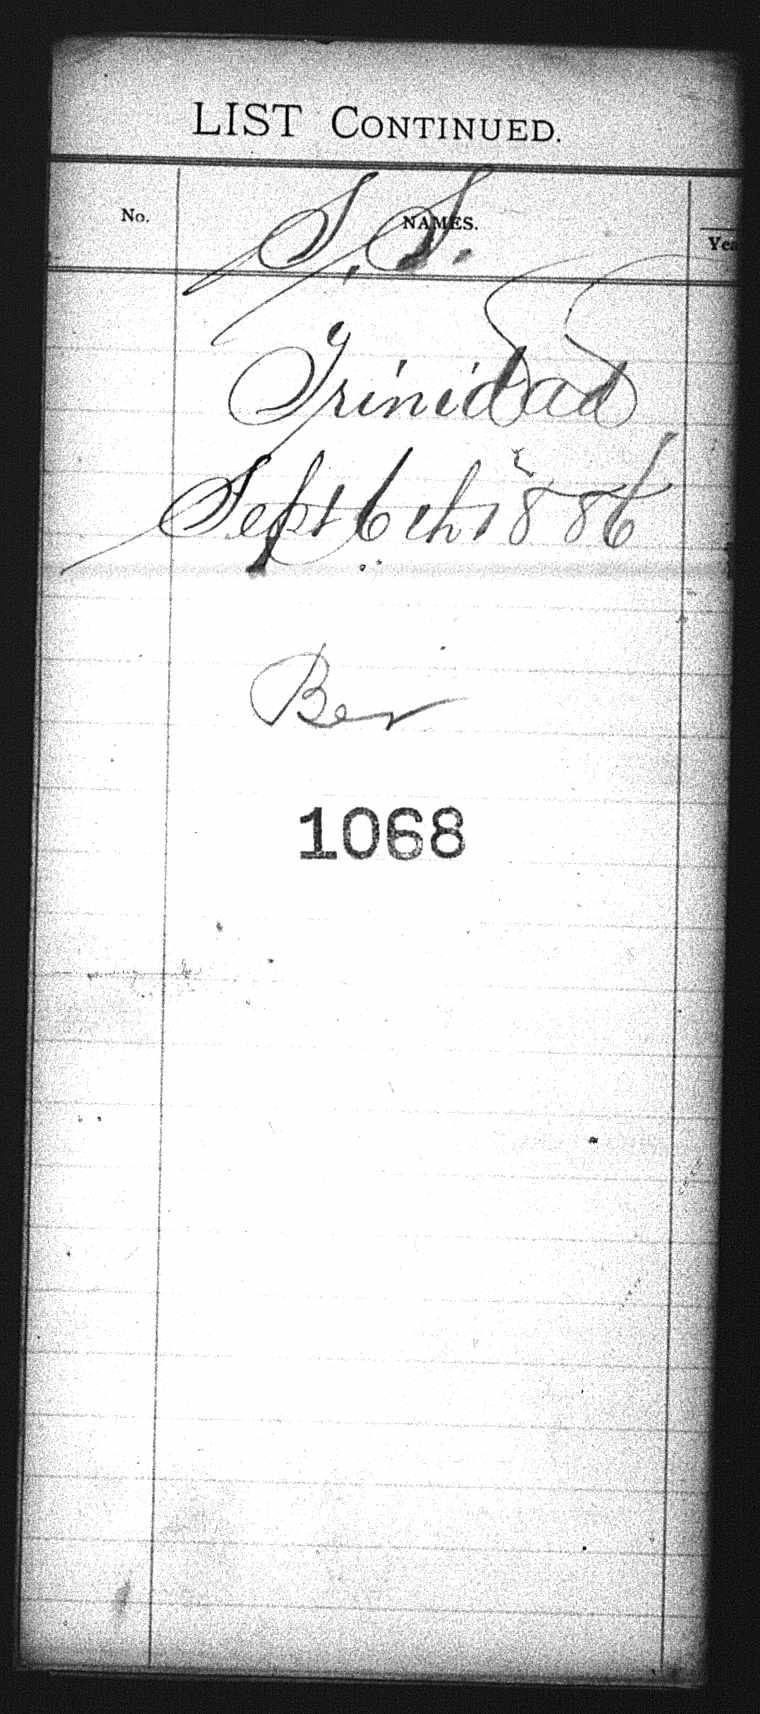 LIST CONTINUED.
No.
NAMES.
S. S.
Trinidad
Sept 6th 1886
Ber
1068